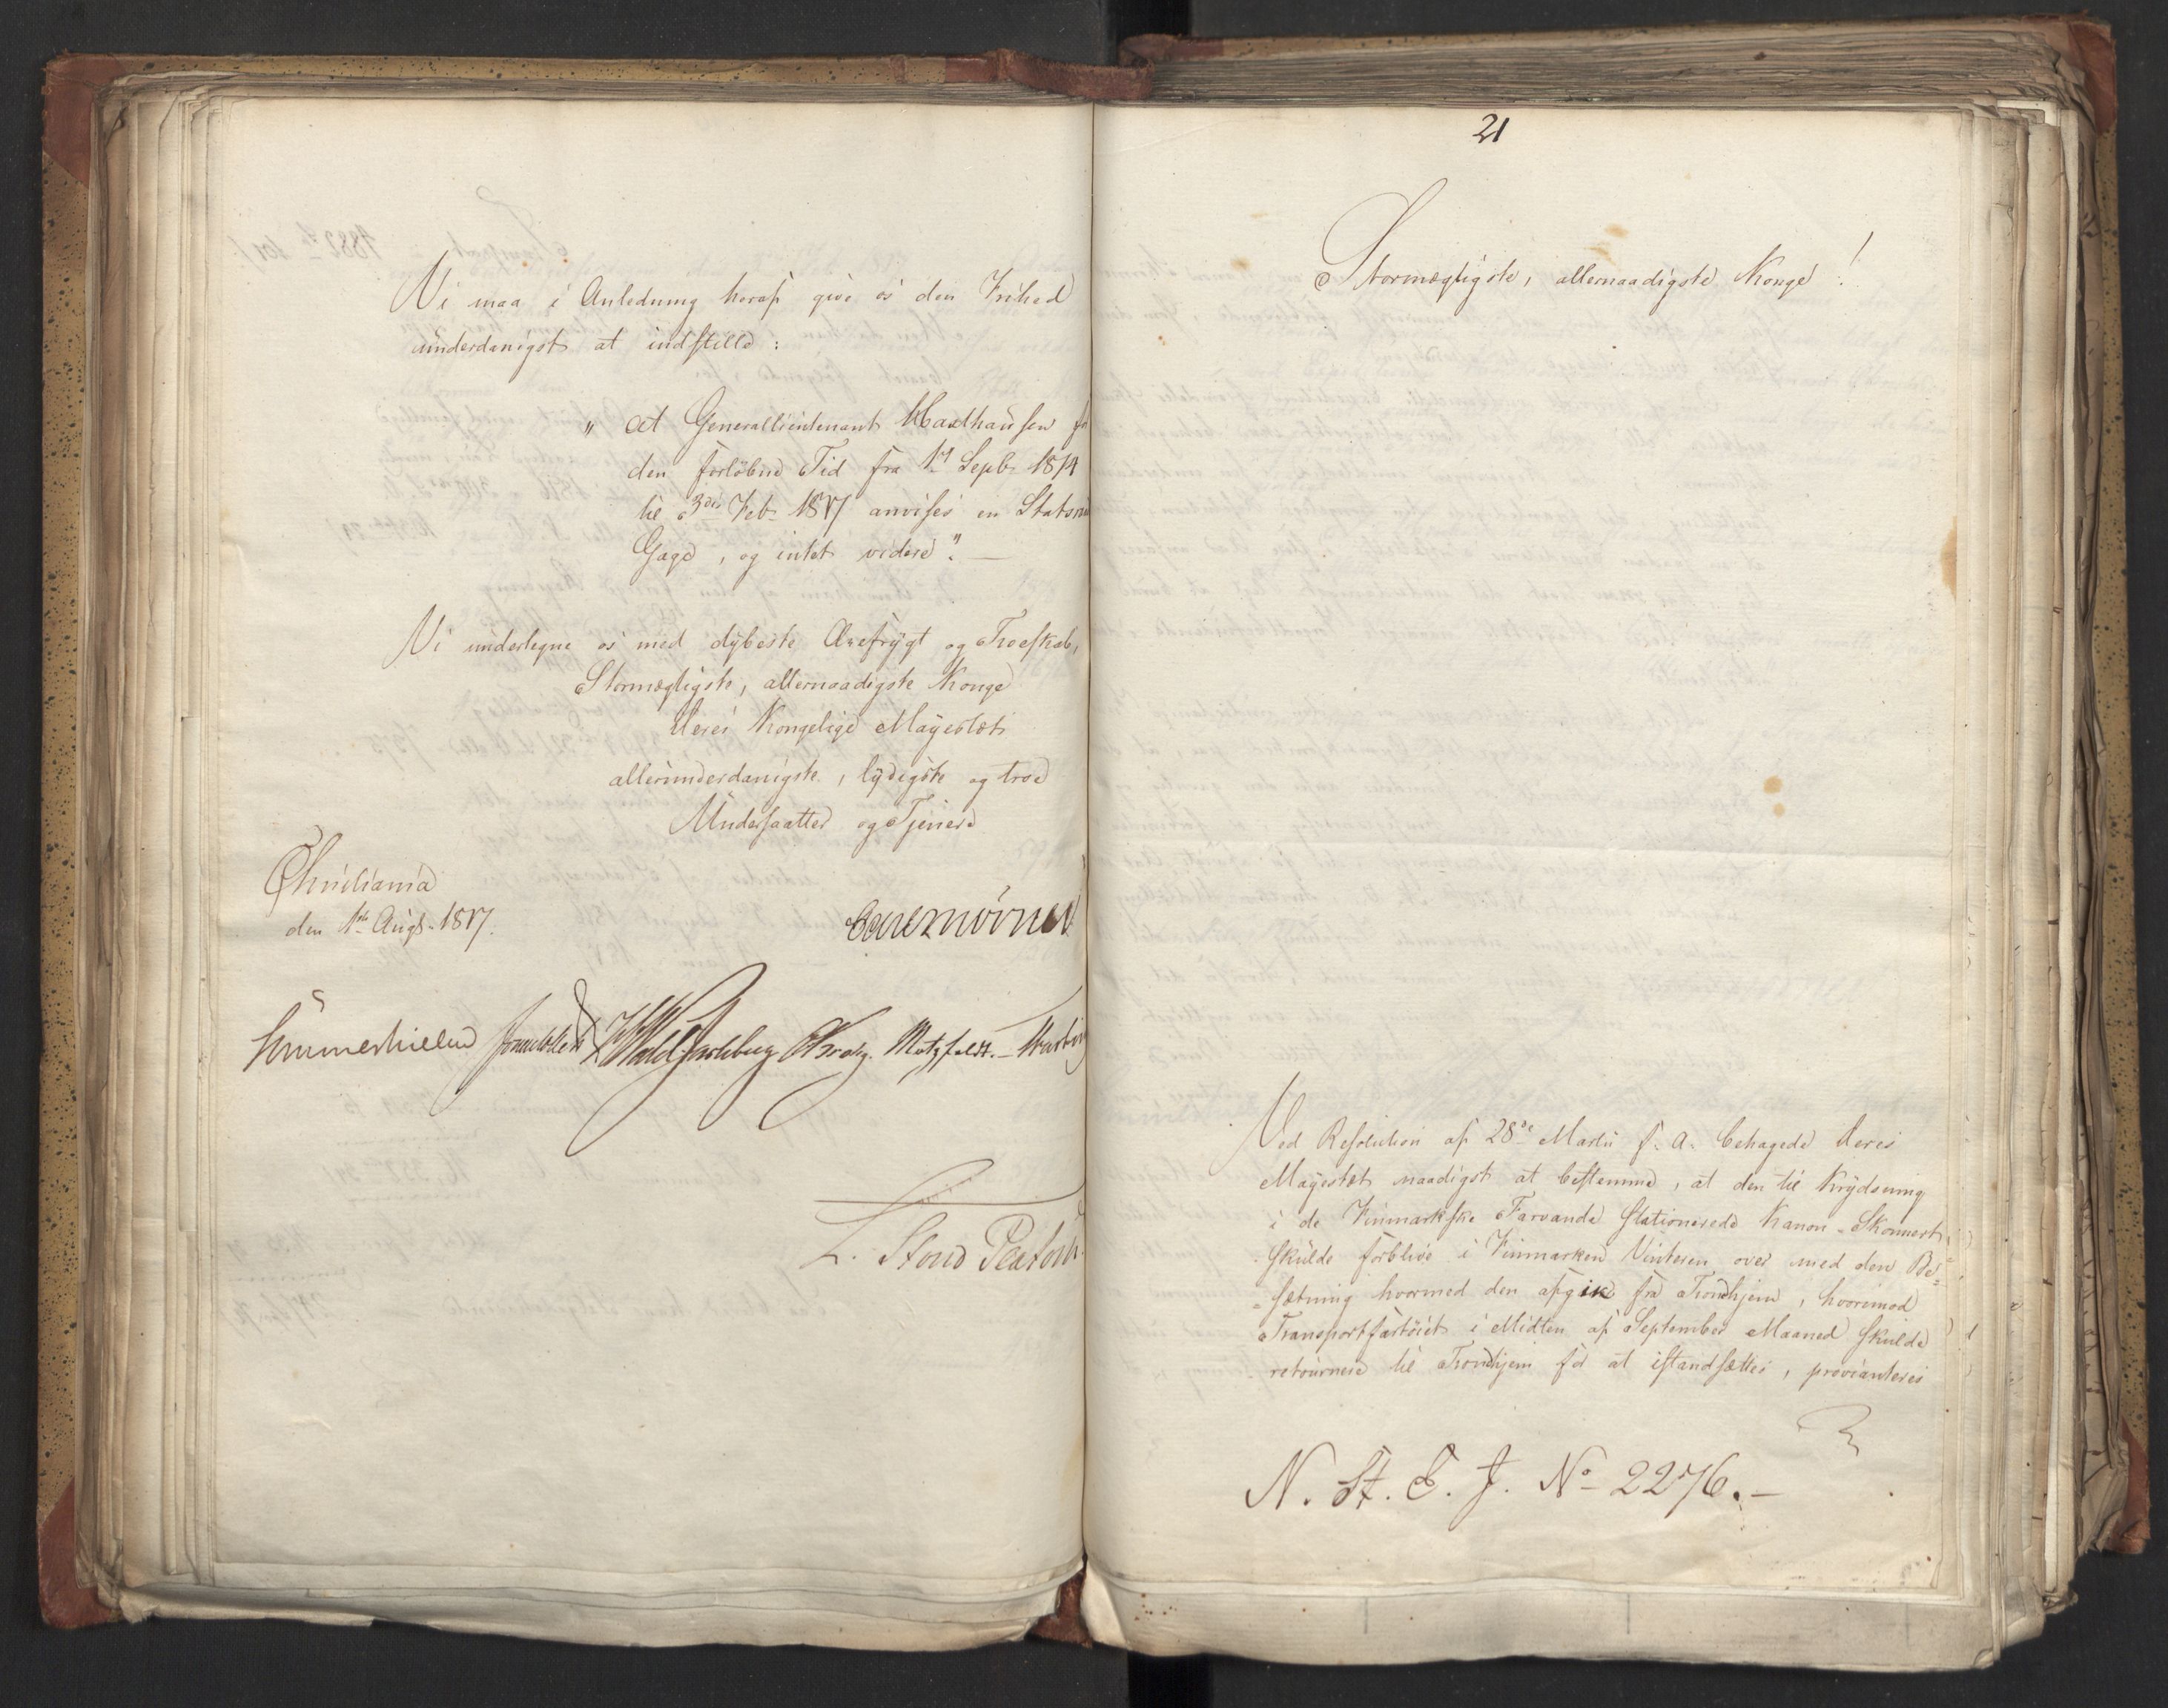 Vi maa i Anledning heraf give os den Frihed
underdanigst at indstille:
" at Generallieutenant Haxthausen for
den forløbne Tid fra 1ste Septbr 1814
til 3die Febr 1817 anvises en Statsraads
Gage, og intet videre". —
Vi undertegne os med dybeste Ærefrygt og Troeskab,
Stormægtigste, allernaadigste Konge
Deres Kongelige Mayestæts
allerunderdanigste, lydigste og troe
Undersaatter og Tjenere
Christiania
den 1ste Augst 1817.
Carl Mörner
Sommerhielm Wedel Jarlsberg Krog. Motzfeldt. —
L. Stoud Platou
21
Stormægtigste, allernaadigste Konge!
Ved Resolution af 28de Martii f. A. behagede Deres
Mayestæt naadigst at bestemme, at den til Krydsning
i de Finmarkske Farvande stationerede Kanon-Skonnert,
skulde forblive i Finmarken Vinteren over med den Be-
-sætning hvormed den afgik fra Trondhjem, hvorimod
Transportfartøiet i Midten af September Maaned skulde
retournere til Trondhjem for at istandsættes, provianteres
N. St. E. J. No 2276. —